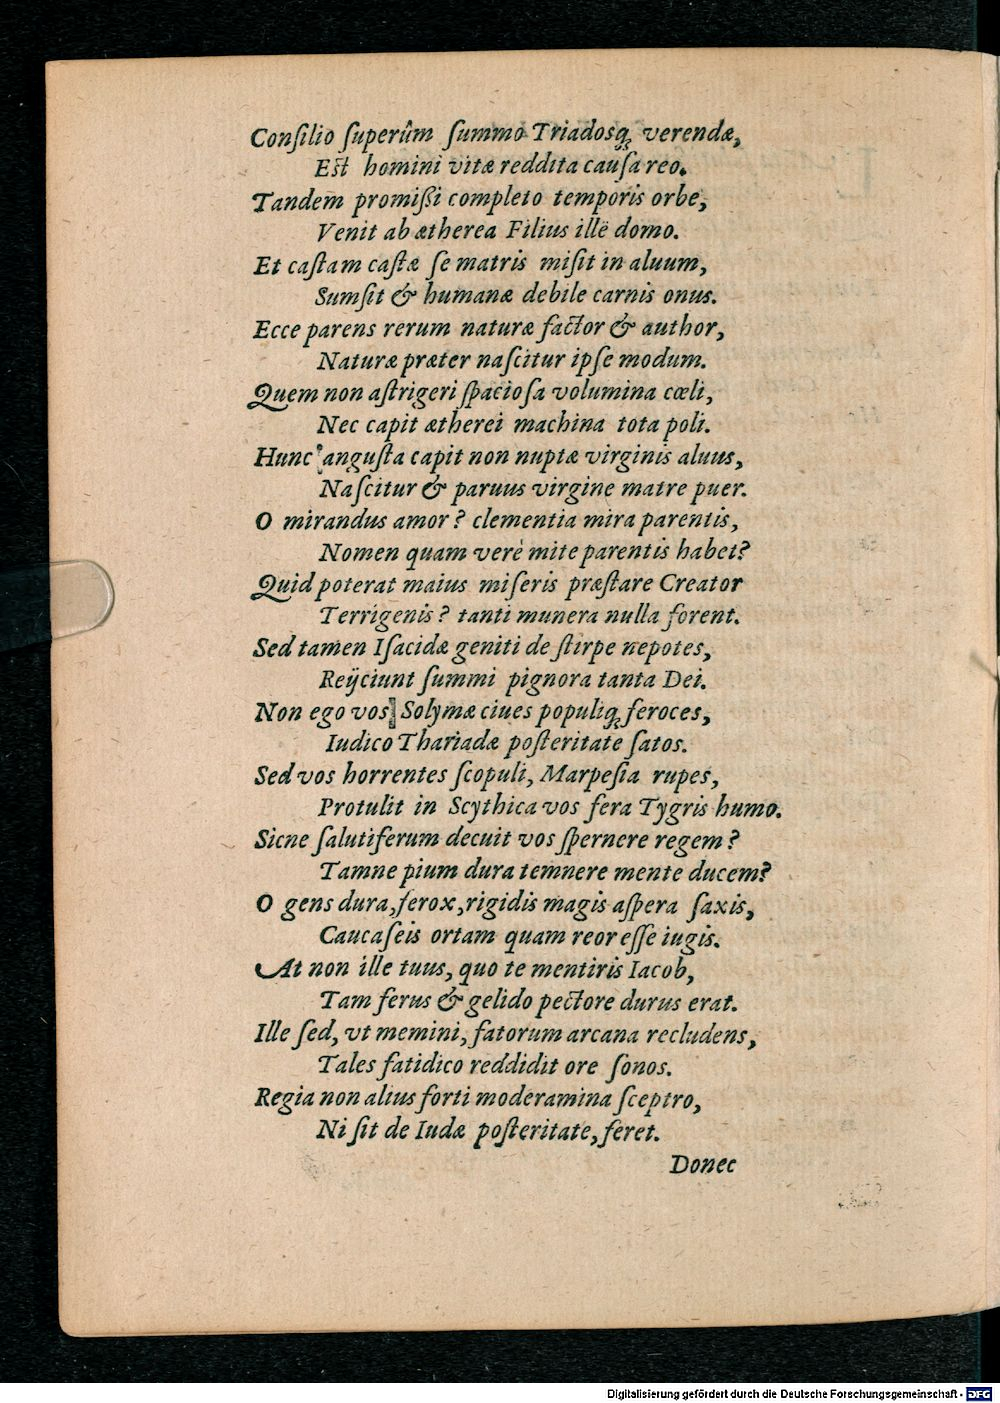 Conſilio ſuperûm ſummo Triadosq́; verendæ,
Eſt homini vitæ reddita cauſa reo.
Tandem promiſſi completo temporis orbe,
Venit ab ætherea Filius ille domo.
Et caſtam caſtæ ſe matris miſit in aluum,
Sumſit & humanæ debile carnis onus.
Ecce parens rerum naturæ factor & author,
Naturæ præter naſcitur ipſe modum.
Quem non aſtrigeri ſpacioſa volumina cœli,
Nec capit ætherei machina tota poli.
Hunc anguſta capit non nuptæ virginis aluus,
Naſcitur & paruus virgine matre puer.
O mirandus amor? clementia mira parentis,
Nomen quam verè mite parentis habet?
Quid poterat maius miſeris præſtare Creator
Terrigenis? tanti munera nulla forent.
Sed tamen Iſacidæ geniti de ſtirpe nepotes,
Reijciunt ſummi pignora tanta Dei.
Non ego vos Solymæ ciues populiq́; feroces,
Iudico Thariadæ poſteritate ſatos.
Sed vos horrentes ſcopuli, Marpeſia rupes,
Protulit in Scythica vos fera Tygris humo.
Sicne ſalutiferum decuit vos ſpernere regem?
Tamne pium dura temnere mente ducem?
O gens dura, ferox, rigidis magis aſpera ſaxis,
Caucaſeis ortam quam reor eſſe iugis.
At non ille tuus, quo te mentiris Iacob,
Tam ferus & gelido pectore durus erat.
Ille ſed, vt memini, fatorum arcana recludens,
Tales fatidico reddidit ore ſonos.
Regia non alius forti moderamina ſceptro,
Ni ſit de Iudæ poſteritate, feret.
Donec
Digitalisierung gefördert durch die Deutsche Forschungsgemeinschaft - DFG